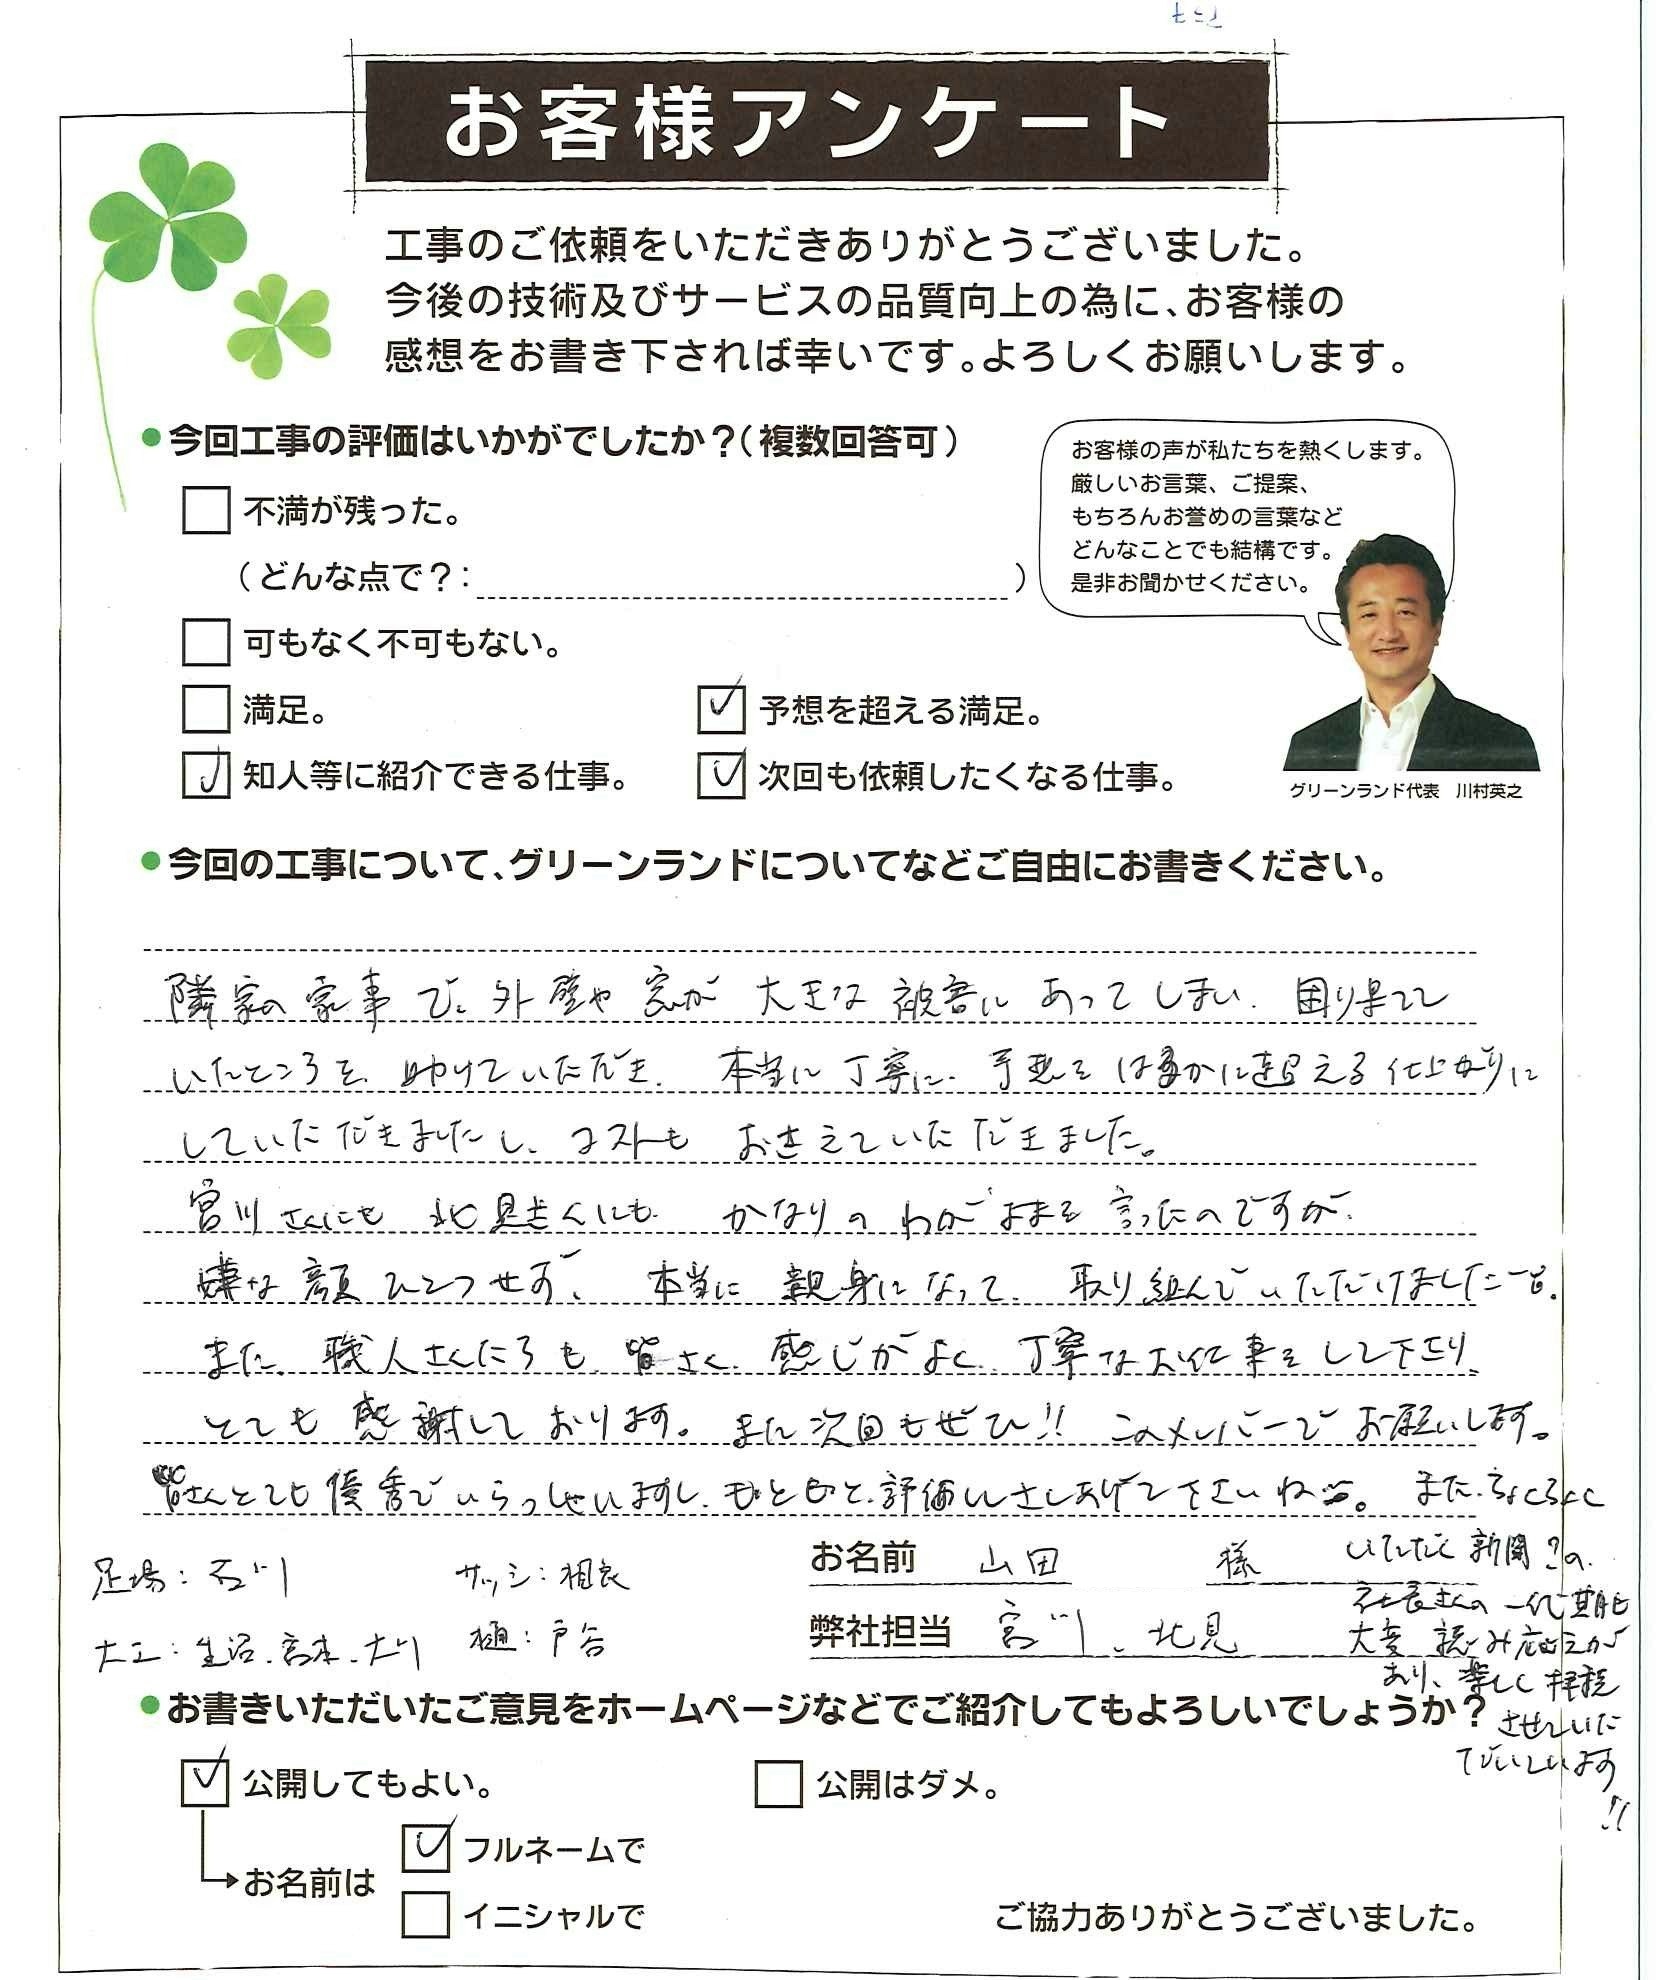 お客様アンケート
工事のご依頼をいただきありがとうございました。
今後の技術及びサービスの品質向上の為に、お客様の
感想をお書き下されば幸いです。よろしくお願いします。
●今回工事の評価はいかがでしたか？(複数回答可)
お客様の声が私たちを熱くします。
厳しいお言葉、ご提案、
もちろんお誉めの言葉など
どんなことでも結構です。
是非お聞かせください。
不満が残った。
（どんな点で？：　）
可もなく不可もない。
満足。
予想を超える満足。
知人等に紹介できる仕事。
次回も依頼したくなる仕事。
グリーンランド代表　川村英之
●今回の工事について、グリーンランドについてなどご自由にお書きください。
隣家の家事で、外壁や窓が 大きな被害に あってしまい、困り果てて
いたところを、助けていただき、本当に丁寧に、予想をはるかに超える仕上がりに
していただきましたし、コストも おさえていただきました。
宮川さんにも 北見さんにも かなりの わがままを言ったのですが、
嫌な顔ひとつせず、本当に 親身になって、取り組んでいただけました
また、職人さんたちも、皆さん、感じがよく、丁寧なお仕事をして下さり、
とても 感謝しております。また次回もぜひ!! このメンバーで お願いします。
皆さんとても優秀でいらっしゃいますし、もっともっと、評価してさしあげて下さいね。また、ちょくちょく
いただく 新聞？の、
社長さんの 一代期も
大変 読み応えが
あり、楽しく 拝読
させていた
だいています
!!
足場：石川
サッシ：相良
大工：生沼、宮本、大川
樋：戸谷
お名前　山田　様
弊社担当　宮川、北見
●お書きいただいたご意見をホームページなどでご紹介してもよろしいでしょうか？
公開してもよい。
公開はダメ。
お名前は
フルネームで
イニシャルで
ご協力ありがとうございました。